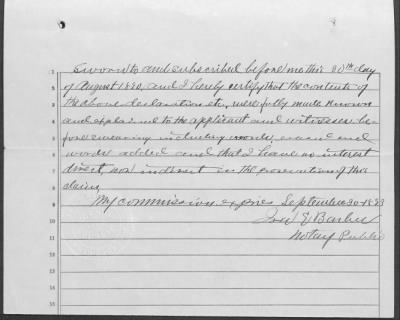 8
1 Sworn to and subscribed before me this 20th day
2 of August 1890, and I hereby certify that the contents of
3 the above declaration etc. were fully made known
4 and explained to the applicant and witnesses be-
5 fore swearing including words erased and
6 words added and that I have no interest
7 direct, nor indirect in the prosecution of this
8 claim,
9 My commission expires September 30-1893
10 Barber
11 Notary Public
12
13
14
15